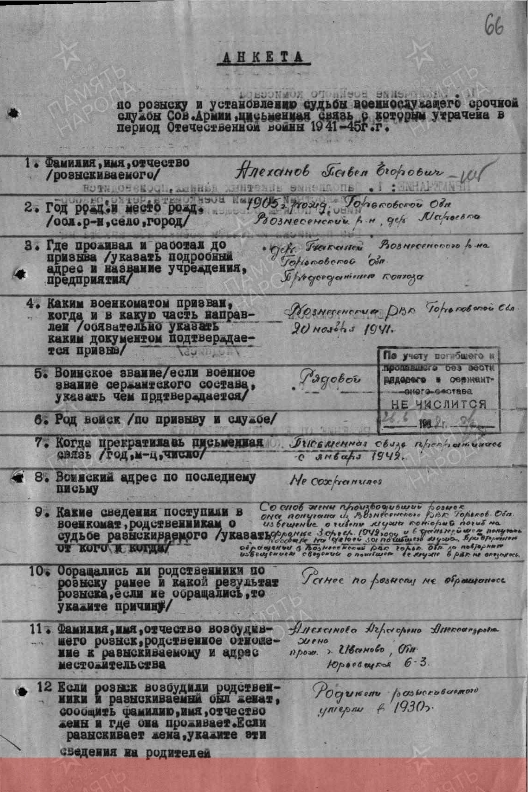 66
АНКЕТА
по розыску и установлению судьбы военнослужащего срочной
службы Сов.Армии,письменная связь с которым утрачена в
период Отечественной войны 1941-45г.г.
1. Фамилия,имя,отчество
/розыскиваемого/
Алеханов Павел Егорович
2. Год рожд. и место рожд.
/обл.р-н,село,город/
1905г. рожд. Горьковской Обл
Вознесенский р-н, дер
3. Где проживал и работал до
призыва /указать подробный
адрес и название учреждения,
предприятия/
дер. Вознесенского р-на
Горьковской Обл
Председателем колхоза
4. Каким военкоматом призван,
когда и в какую часть направ-
лен /обязательно указать
каким документом подтверждае-
тся призыв/
Вознесенским РВК Горьковской Обл
20 ноября 1941.
5. Воинское звание/если военное
звание сержантского состава,
указать чем подтверждается/
Рядовой
По учету погибшего и
пропавшего без вести
рядового и сержант-
ского состава
НЕ ЧИСЛИТСЯ
196
6. Род войск /по призыву и службе/
7. Когда прекратилась письменная
связь /год,м-ц,число/
Письменная связь прекратилась
с января 1942г.
8. Воинский адрес по последнему
письму
Не сохранился
9. Какие сведения поступили в
военкомат,родственникам о
судьбе разыскиваемого /указать
от кого и когда/
Со слов жены производившей розыск
она получила из Вознесенского РВК Горьков. Обл.
извещение о гибели мужа который погиб на
10. Обращались ли родственники по
розыску ранее и какой результат
розыска,если не обращались,то
укажите причину/
Ранее по розыску не обращалась
11. Фамилия,имя,отчество возбудив-
шего розыск,родственное отноше-
ние к разыскиваемому и адрес
местожительства
Алеханова Агрипена Александровна
жена
прож. г. Иваново, Обл
Юрьевецкая 6-3.
12 Если розыск возбудили родствен-
ники и разыскиваемый был женат,
сообщить фамилию,имя,отчество
жены и где она проживает.Если
разыскивает жена,укажите эти
сведения на родителей
Родители разыскиваемого
умерли в 1930г.
ПАМЯТЬ
НАРОДА